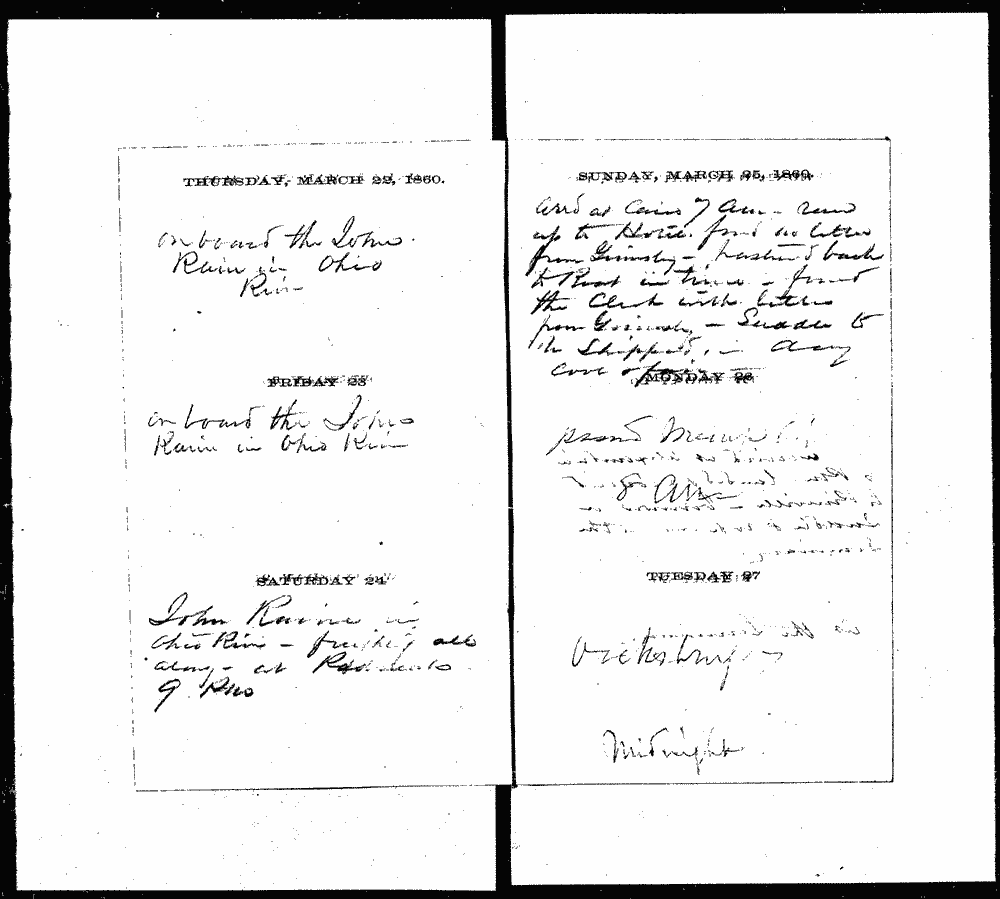 THURSDAY, MARCH 22, 1860.
on board the John
Rain in Ohio
Riv
FRIDAY 23
on board the John
Raine in Ohio Riv
SATURDAY 24
John Raine in
Ohio Riv - freighting all
along - at
9
SUNDAY, MARCH 25, 1860.
Arrd at Cairo 7 am -
up to Hotel. found no letter
from Grimsley - hastened back
to Boat in time - found
the Clerk with letter
from Grimsley - Saddle to
be Shipped, in
care of
MONDAY 26
passed
8 AM
TUESDAY 27
Vicksburg
Midnight